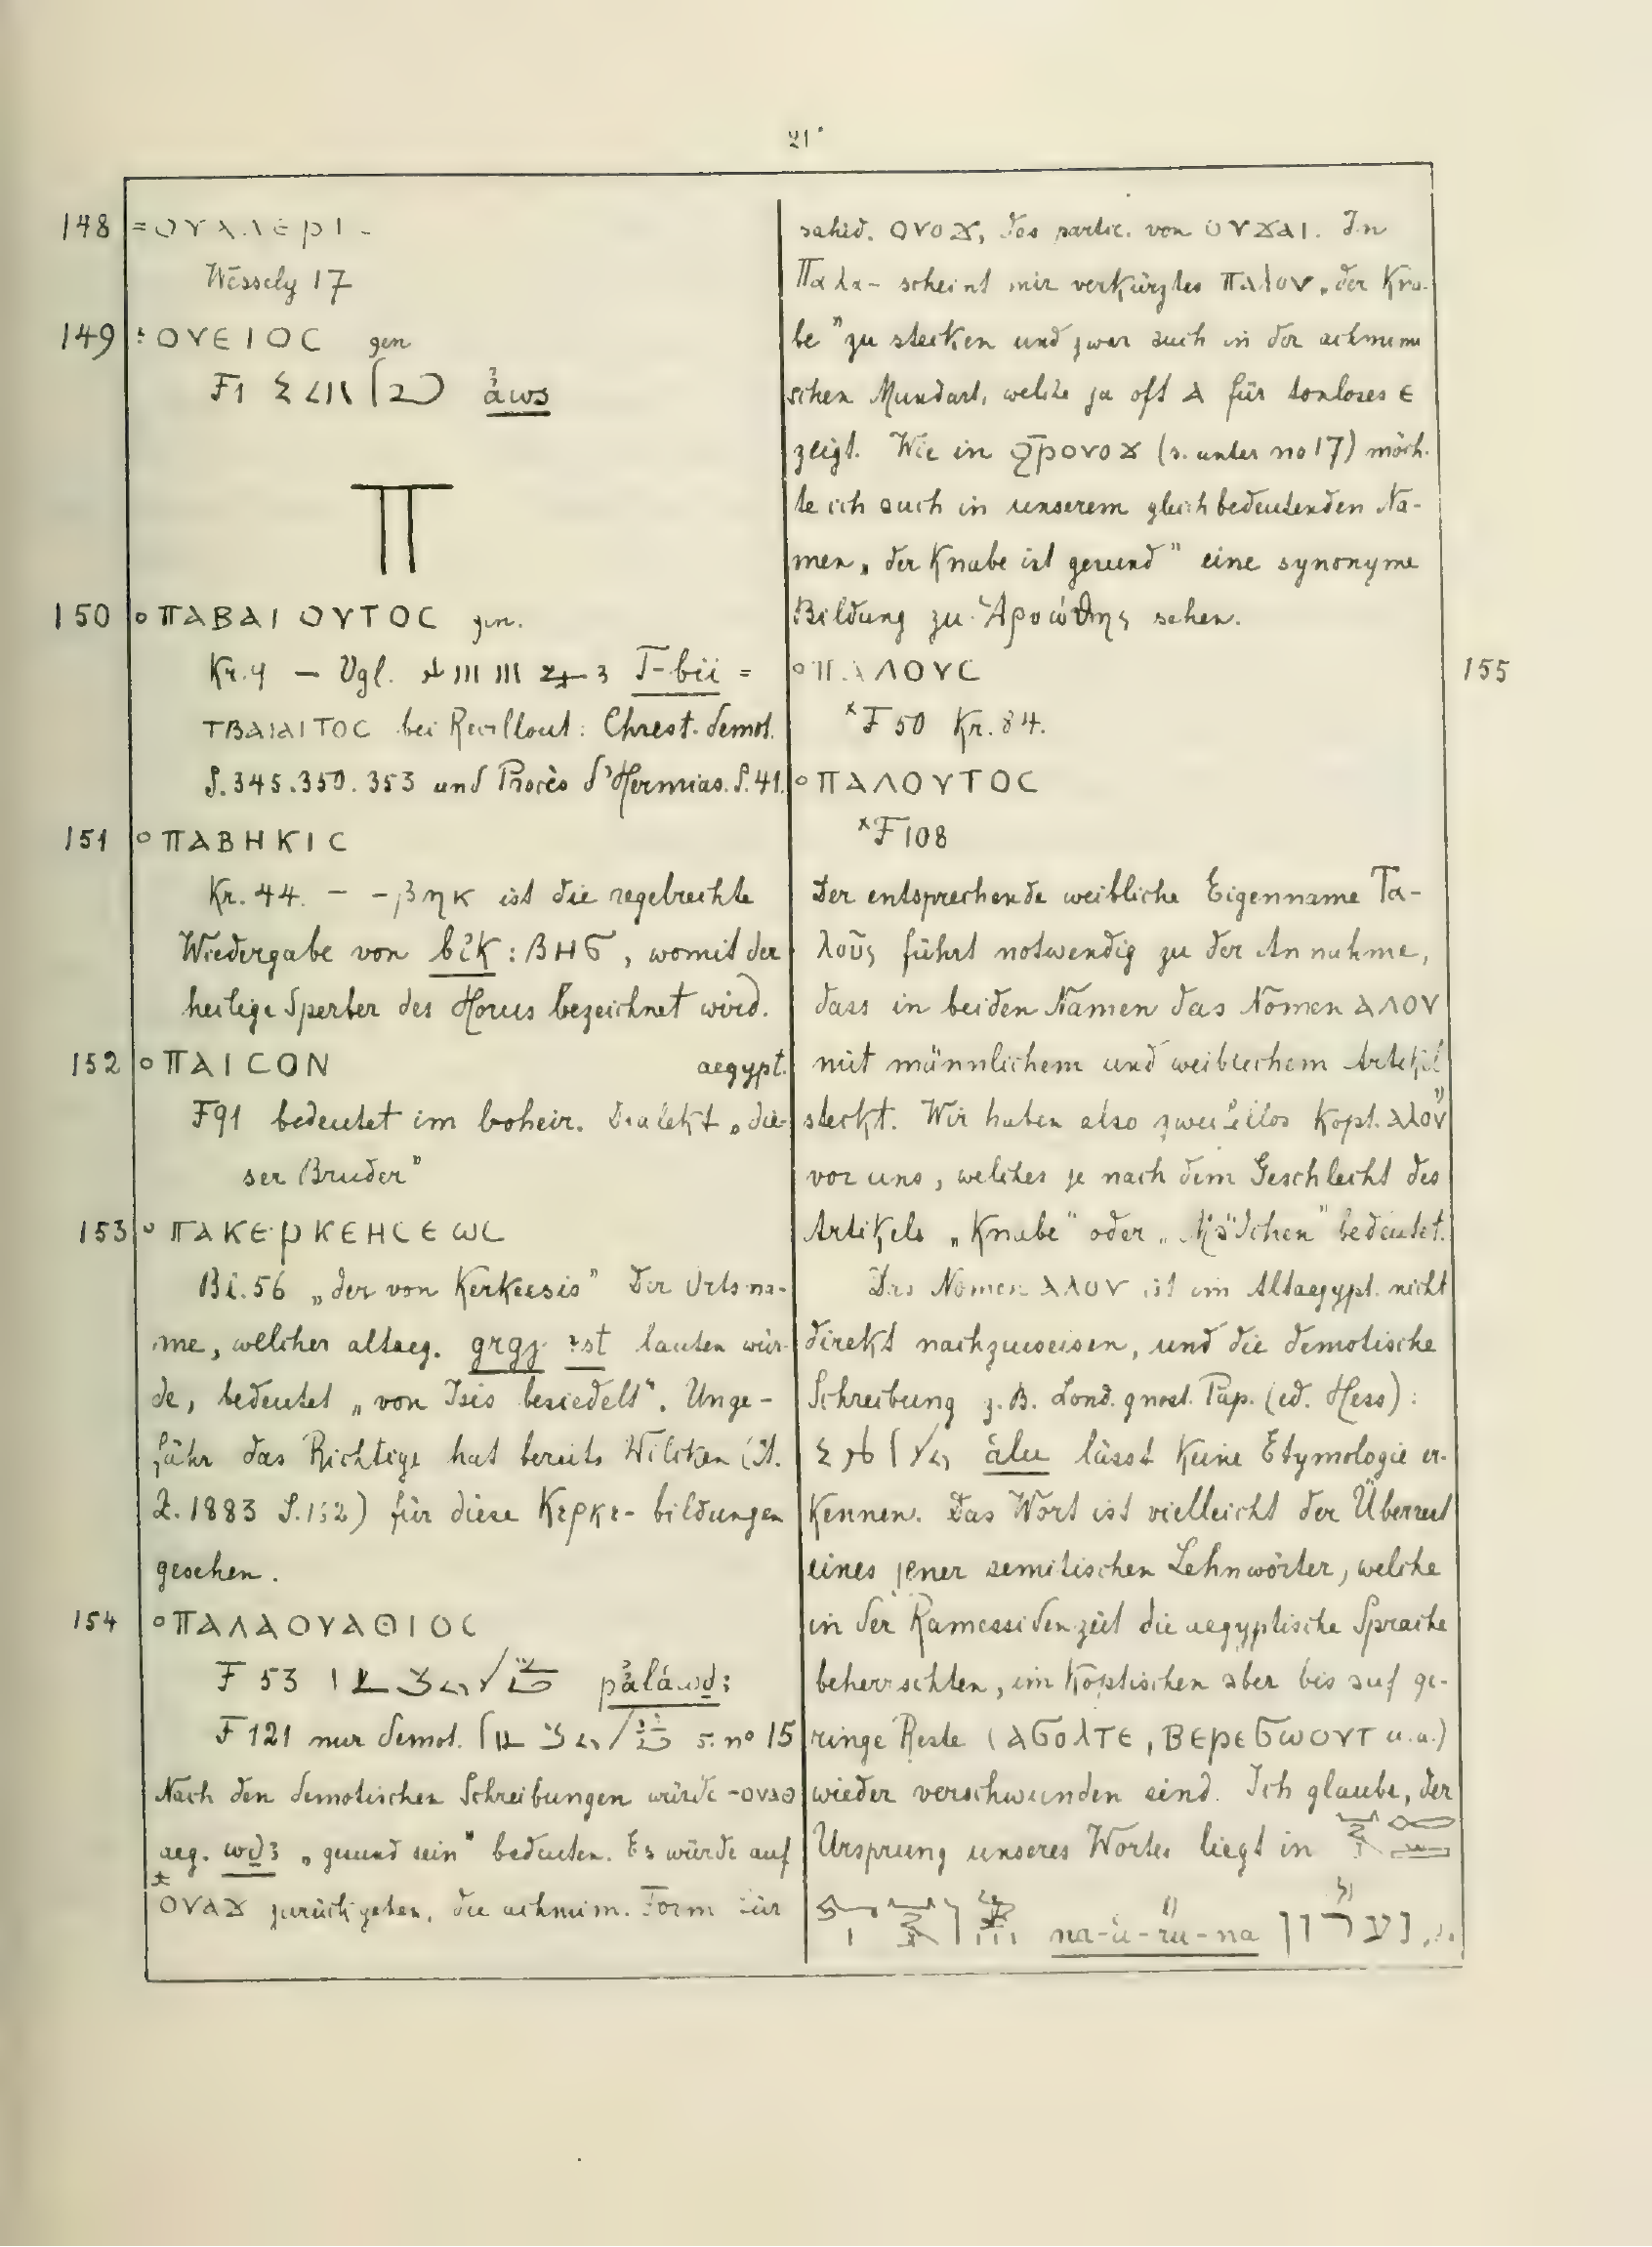 21*
148 = ΟΥΑΛΕΡΙ -
Wessely 17
149 : ΟΥΕΙΟC gen
F1 ȧws
Π
150 o ΠΑΒΑΙΟΥΤΟC gen.
Kr. 4 — Vgl. T-bii =
ΤΒΑΙΑΙΤΟC bei Revillout: Chrest. demot.
S. 345. 350. 353 und Procès d'Hermias. S. 41.
151 o ΠΑΒΗΚΙC
Kr. 44. — -βηκ ist die regelrechte
Wiedergabe von bik : ΒΗϬ, womit der
heilige Sperber des Horus bezeichnet wird.
152 o ΠΑΙCΟΝ aegypt.
F91 bedeutet im boheir. Dialekt „die-
ser Bruder"
153 o ΠΑΚΕΡΚΕΗCΕωC
Bi. 56 „der von Kerkeesis" Der Ortsna-
me, welcher altaeg. grgj ꜣst lauten wür-
de, bedeutet „von Isis besiedelt". Unge-
fähr das Richtige hat bereits Wilcken (
Z. 1883 S. 162) für diese Κερκε- bildungen
gesehen.
154 o ΠΑΛΑΟΥΑΘΙΟC
F 53 pꜣláwḏ;
F 121 nur demot. s. no 15
Nach den demotischen Schreibungen würde -ουαθ
aeg. wḏꜣ „gesund sein" bedeuten. Es würde auf
ΟΥΑϪ zurückgehen, die achmim. Form für
sahid. ΟΥΟϪ, das partic. von ΟΥϪΑΙ. In
Παλα- scheint mir verkürztes ΠΑΛΟΥ „der Kna-
be" zu stecken und zwar auch in der achmimi
schen Mundart, welche ja oft Α für tonloses Ε
zeigt. Wie in ϨΡΟΥΟϪ (s. unter no 17) möch-
te ich auch in unserem gleichbedeutenden Na-
men „der Knabe ist gesund" eine synonyme
Bildung zu Ἁροώθης sehen.
o ΠΑΛΟΥC 155
*F 50 Kr. 84.
o ΠΑΛΟΥΤΟC
*F 108
Der entsprechende weibliche Eigenname Τα-
λοῦς führt notwendig zu der Annahme,
dass in beiden Namen das Nomen ΑΛΟΥ
mit männlichem und weiblichem Artikel
steckt. Wir haben also zweifellos Kopt. ΑΛΟΥ
vor uns, welches je nach dem Geschlecht des
Artikels „Knabe" oder „Mädchen" bedeutet.
Das Nomen ΑΛΟΥ ist im Altaegypt. nicht
direkt nachzuweisen, und die demotische
Schreibung z. B. Lond. gnost. Pap. (ed. Hess):
álu lässt keine Etymologie er-
kennen. Das Wort ist vielleicht der Überrest
eines jener semitischen Lehnwörter, welche
in der Ramessidenzeit die aegyptische Sprache
beherrschten, im Koptischen aber bis auf ge-
ringe Reste (ΑϬΟΛΤΕ, ΒΕΡΕϬωΟΥΤ u. a.)
wieder verschwunden sind. Ich glaube, der
Ursprung unseres Wortes liegt in
na-ʿu-rú-na נערון